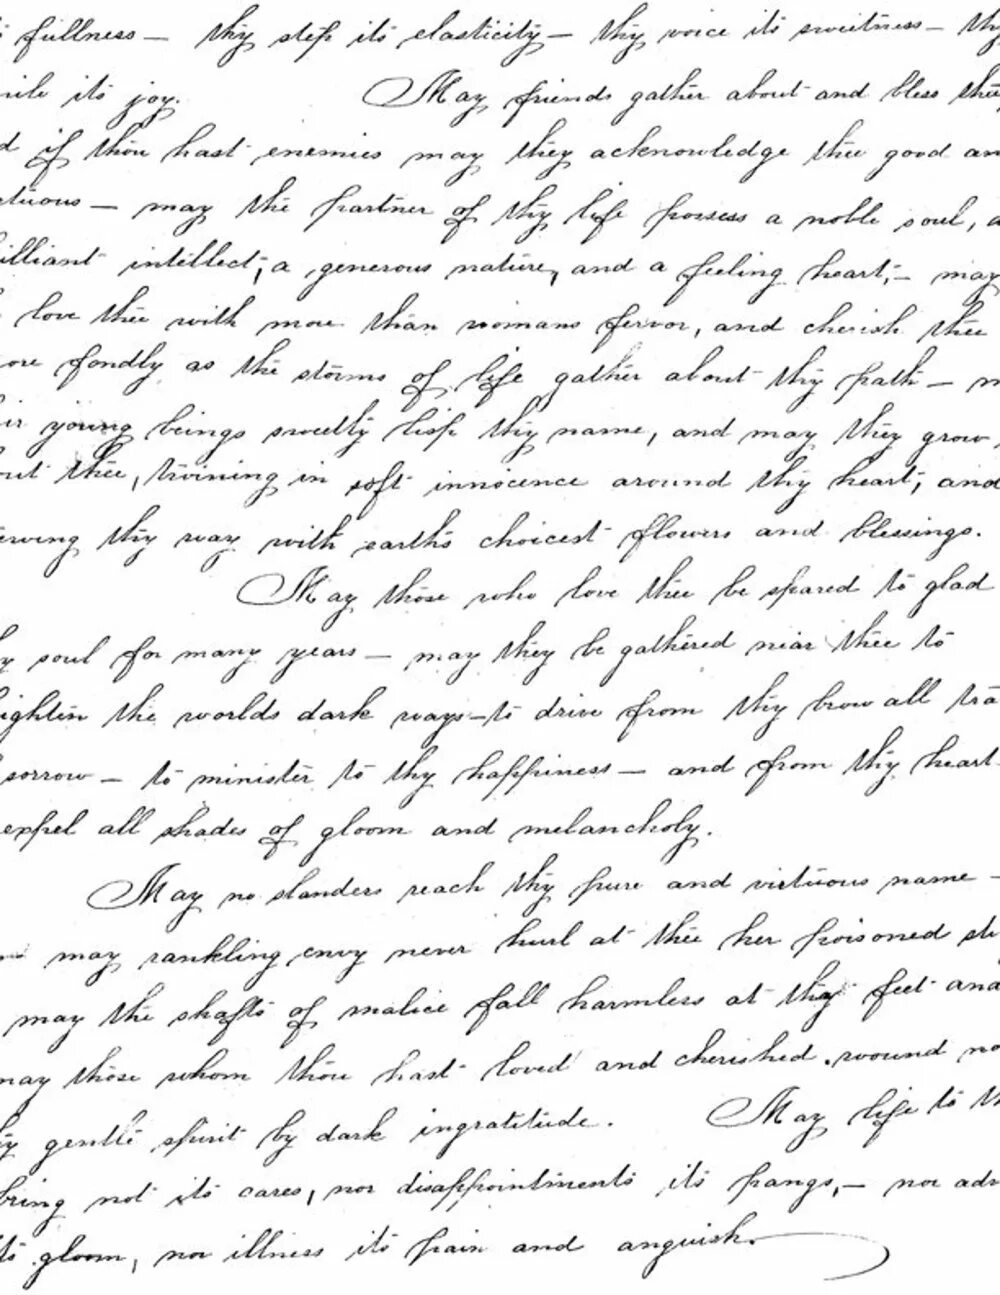 fullness — thy step its elasticity — thy voice its sweetness — thy
its joy. May friends gather about and bless thee
if thou hast enemies may they acknowledge thee good an
tuous — may the partner of thy life possess a noble soul, a
illiant intellect, a generous nature, and a feeling heart, — may
love thee with more than womans fervor, and cherish thee
ore fondly as the storms of life gather about thy path — m
ir young beings sweetly lisp thy name, and may they grow
out thee, twining in soft innocence around thy heart, and
ewing thy way with earths choicest flowers and blessings.
May those who love thee be spared to glad
y soul for many years — may they be gathered near thee to
ighten the worlds dark ways — to drive from thy brow all tra
sorrow — to minister to thy happiness — and from thy heart
expel all shades of gloom and melancholy.
May no slanders reach thy pure and virtuous name —
may rankling envy never hurl at thee her poisoned st
may the shafts of malice fall harmless at thy feet and
may those whom thou hast loved and cherished, wound no
y gentle spirit by dark ingratitude. May life to th
bring not its cares, nor disappointments its pangs, — nor adv
ts gloom, nor illness its pain and anguish.